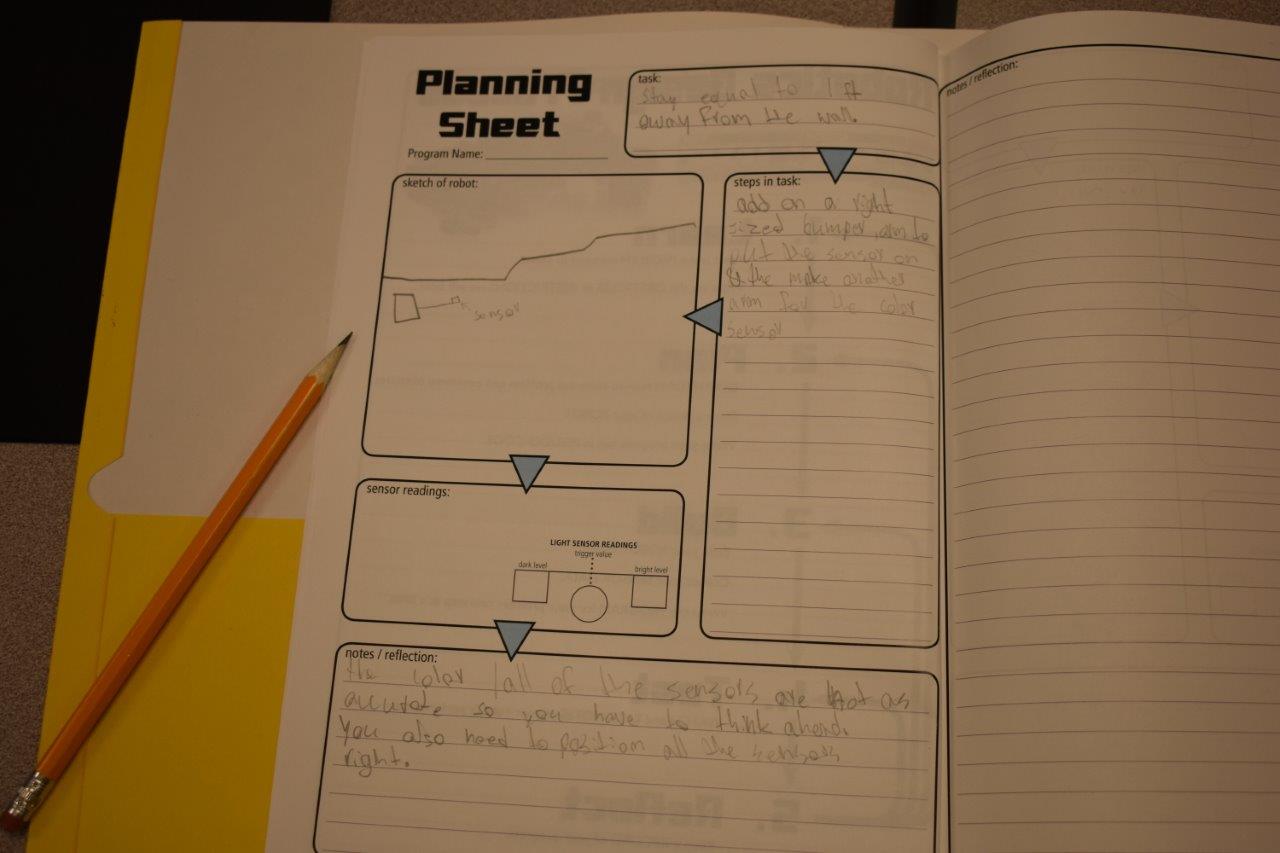 Planning
Sheet
Program Name:
task:
Stay equal to 1 ft
away from the wall.
sketch of robot:
sensor
steps in task:
add on a right
sized bumper, arm to
put the sensor on
the make another
arm for the color
sensor
sensor readings:
LIGHT SENSOR READINGS
trigger value
dark level
bright level
notes / reflection:
the color /all of the sensors are not as
accurate so you have to think ahead.
You also need to position all the sensors
right.
notes / reflection: